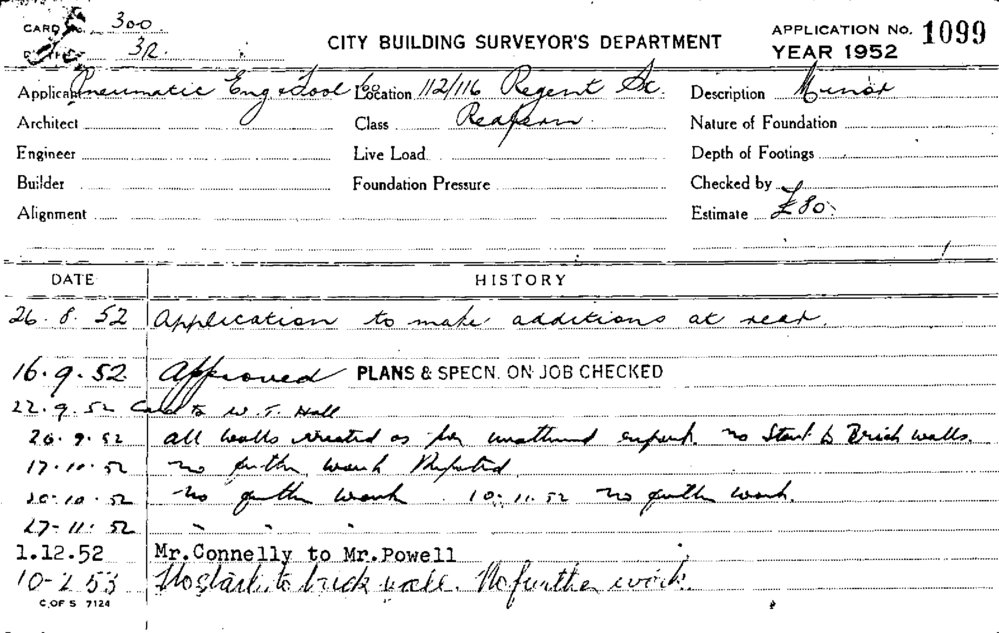 CARD No. 300
3R.
CITY BUILDING SURVEYOR'S DEPARTMENT
APPLICATION No. 1099
YEAR 1952
Applicant Pneumatic Eng & Tool Co Location 112/116 Regent St. Description Minor
Architect Class Nature of Foundation
Engineer Live Load Depth of Footings
Builder Foundation Pressure Checked by
Alignment Estimate £80.
DATE HISTORY
26.8.52 Application to make additions at rear.
16.9.52 Approved PLANS & SPECN. ON JOB CHECKED
22.9.52 Card to W. T. Hall
26.9.52 all walls erected as per no Start to Brick walls.
17.10.52 no further work
20.10.52 no further work 10.11.52 no further work.
27-11.52 " " "
1.12.52 Mr.Connelly to Mr.Powell
10-2.53 No start to brick wall. No further work.
C.OF S 7124